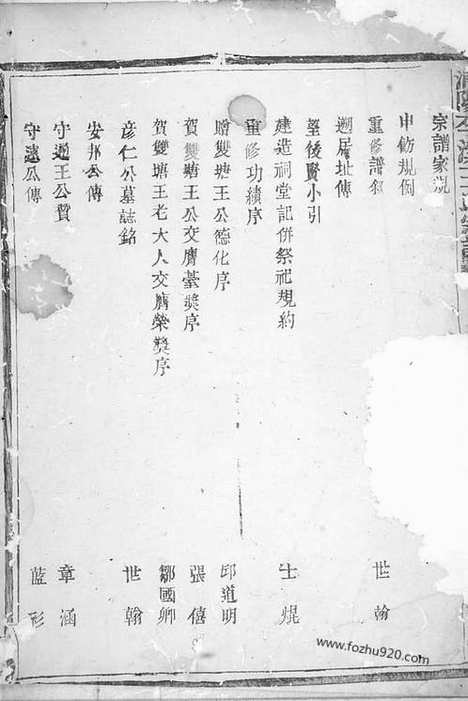 宗譜家規
申飭規例
重修譜叙 世翰
遡居址傳
望後賢小引
建造祠堂記併祭祀規約 士焜
重修功績序
贈雙塘王公德化序 邱道明
賀雙塘王公交膺臺獎序 張僖
賀雙塘王老大人交膺榮獎序 鄒國卿
彦仁公墓誌銘 世翰
安邦公傳
守通王公贊 章涵
守遠公傳 藍
www.fozhu920.com